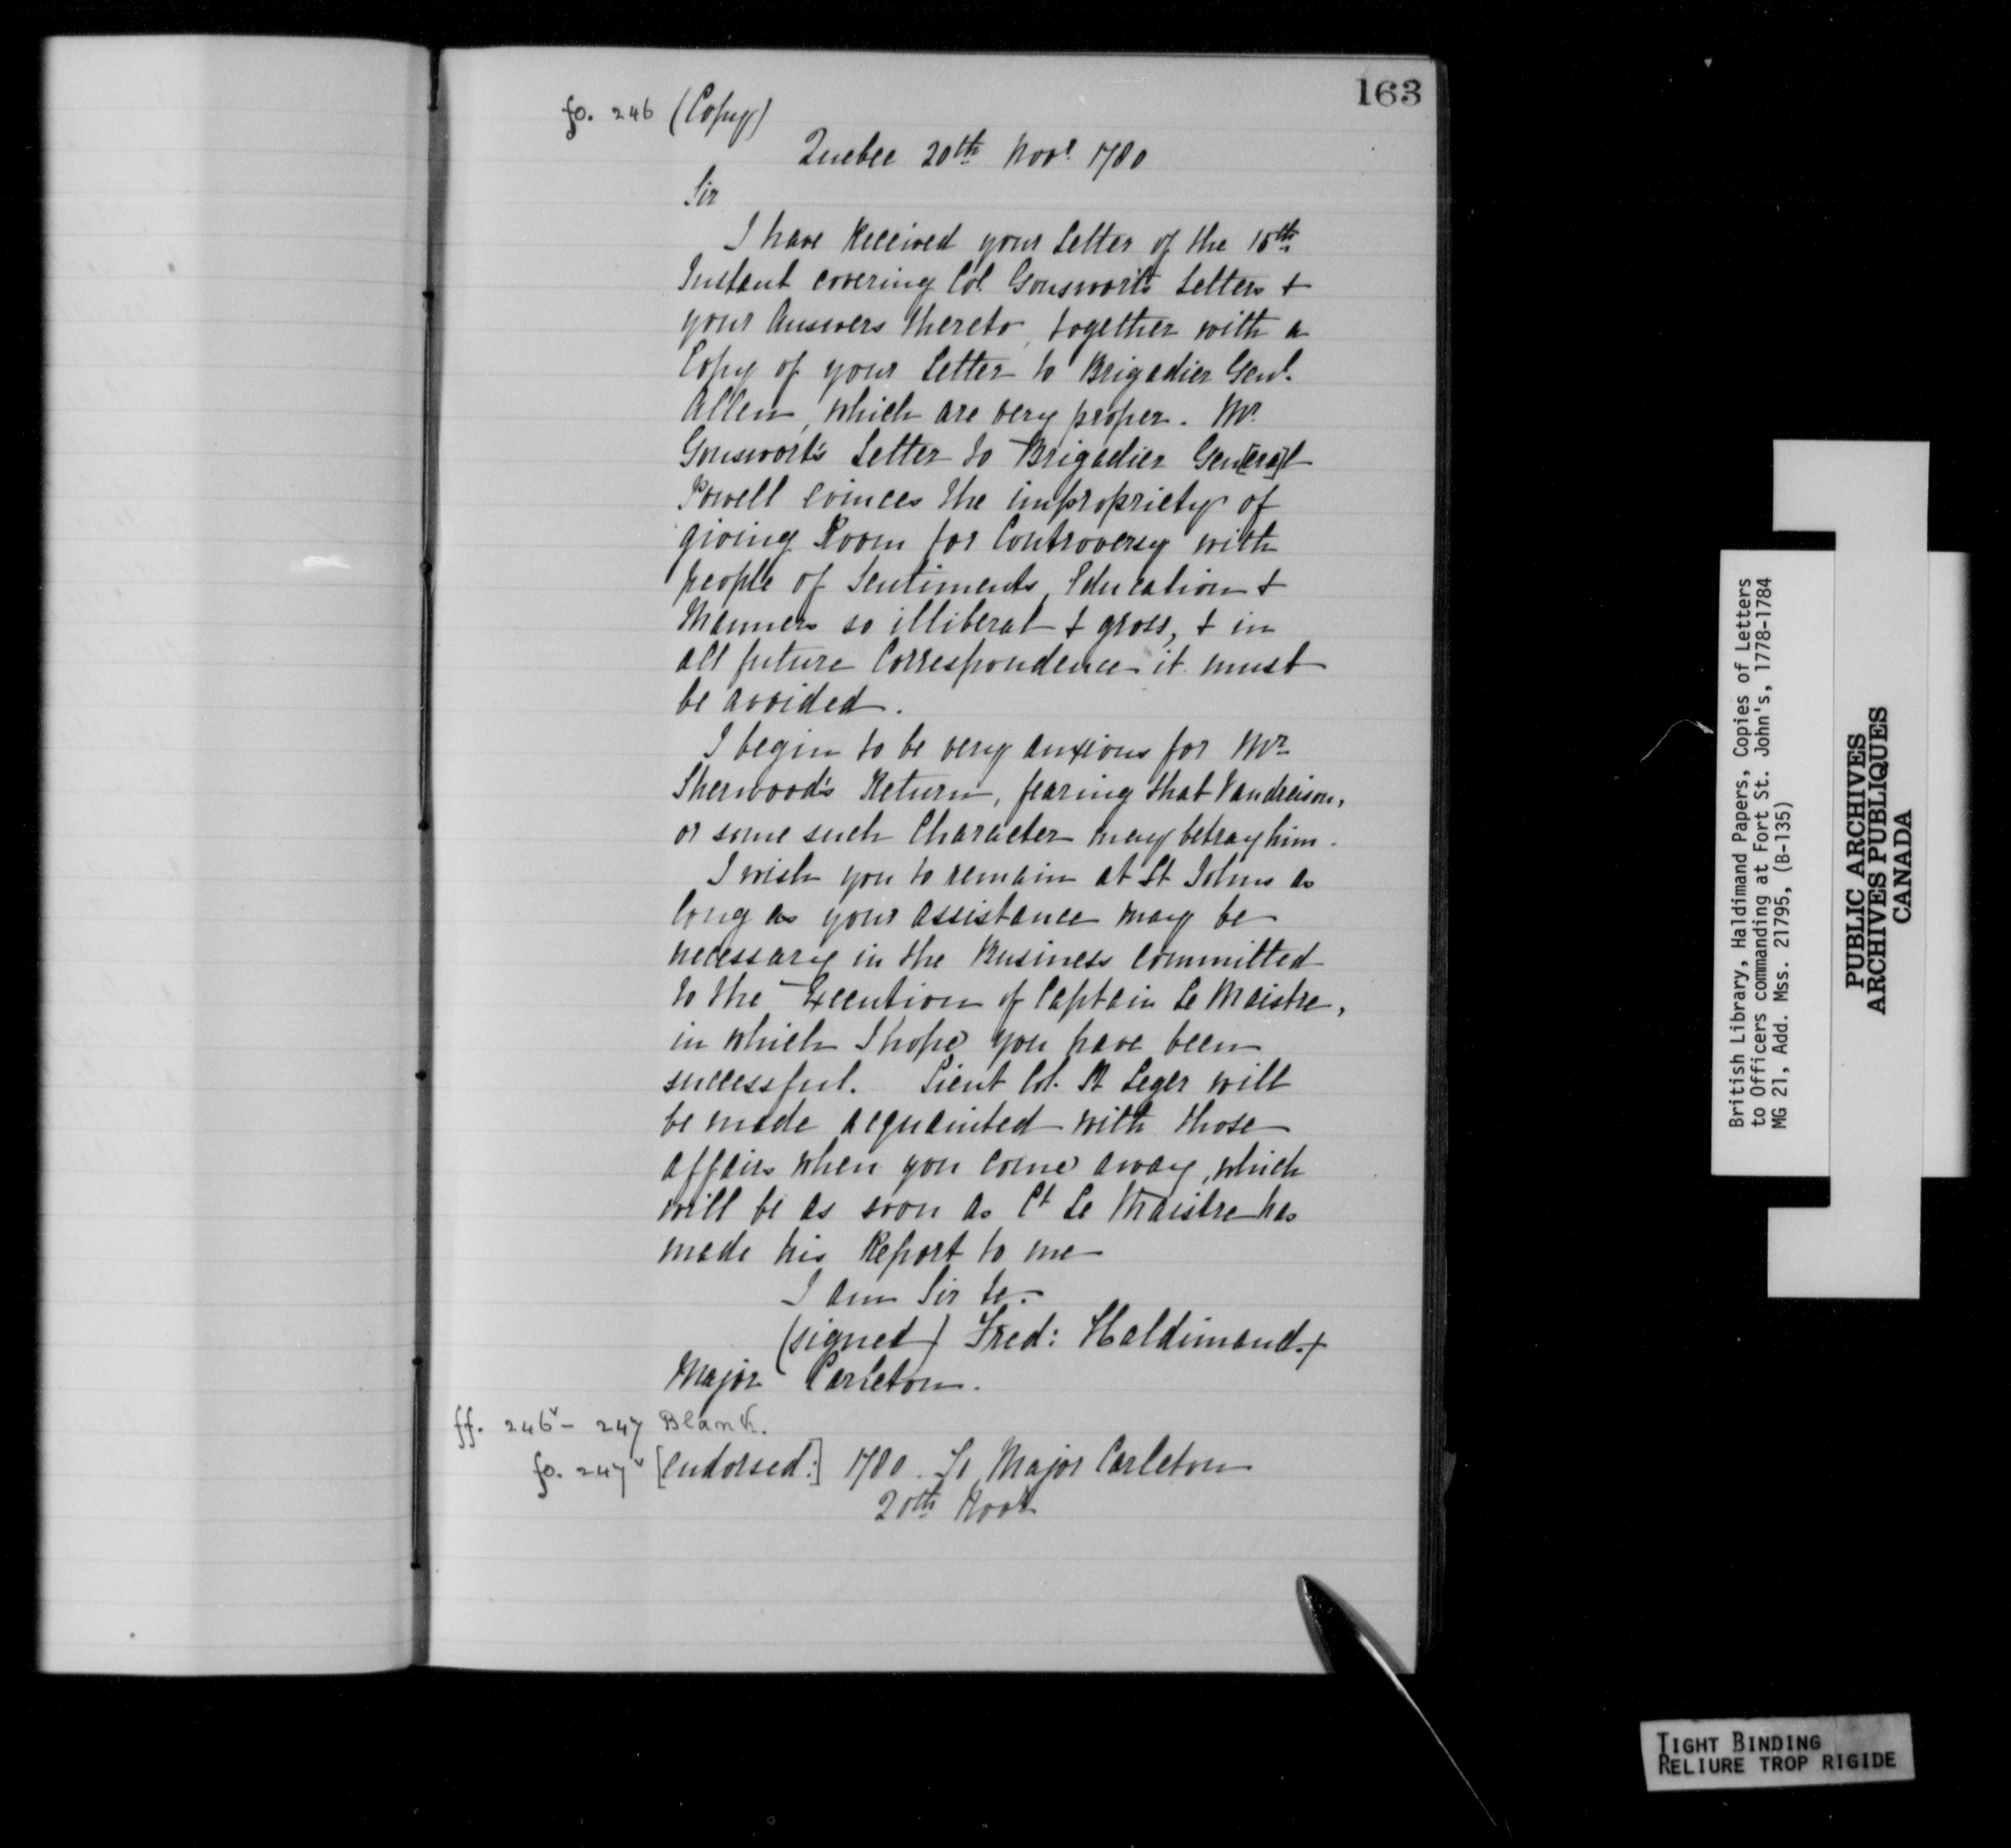 163
fo. 246 (Copy)
Quebec 20th Novr. 1780
Sir
I have Received your Letter of the 15th
Instant covering Col. Gonsworts Letters &
your Answers thereto, together with a
Copy of your Letter to Brigadier Genl.
Allen, which are very proper. Mr.
Gonswort's Letter to Brigadier Gen[era]l
Powell evinces the impropriety of
giving Room for Controversy with
people of Sentiments, Education &
Manners so illiberal & gross, & in
all future Correspondence it must
be avoided.
I begin to be very anxious for Mr
Sherwood's Return, fearing that Vandreison,
or some such Character may betray him.
I wish you to remain at St Johns as
long as your assistance may be
necessary in the Business committed
to the Execution of Captain Le Maistre,
in which I hope you have been
successful. Lieut Col. St Leger will
be made acquainted with those
affairs when you come away, which
will be as soon as Ct Le Maistre has
made his Report to me
I am Sir &c.
(signed) Fred: Haldimand.
Major Carleton.
ff. 246v - 247 Blank.
fo. 247v [Endorsed:] 1780. To Major Carleton
20th Novr
British Library, Haldimand Papers, Copies of Letters
to Officers commanding at Fort St. John's, 1778-1784
MG 21, Add. Mss. 21795, (B-135)
PUBLIC ARCHIVES
ARCHIVES PUBLIQUES
CANADA
TIGHT BINDING
RELIURE TROP RIGIDE